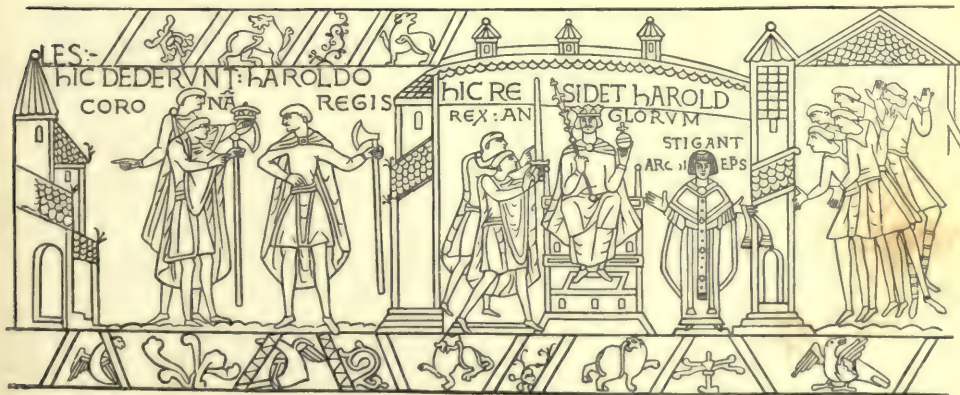 LES:-
hIC DEDERVNT: hAROLDO
CORO NÃ REGIS
hIC RE SIDET hAROLD
REX: AN GLORVM
STIGANT
ARC II EP̃S